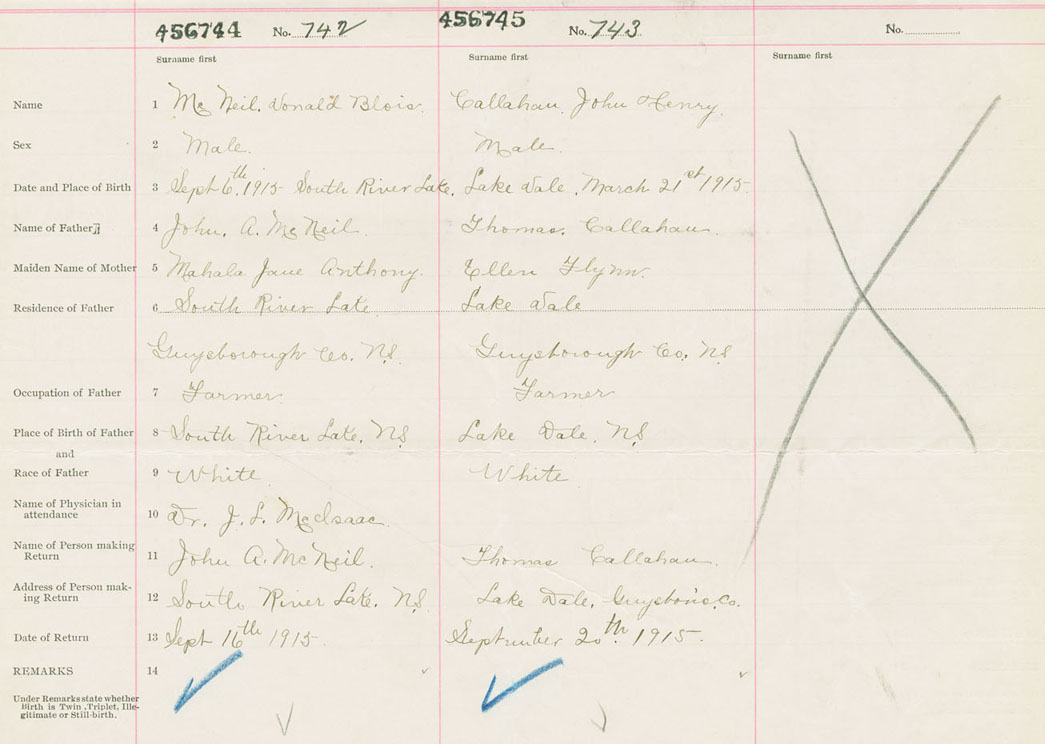 456744 No. 742 456745 No. 743 No.
Surname first Surname first Surname first
Name 1 Mc Neil. Donald Blois. Callahan, John Henry.
Sex 2 Male. Male.
Date and Place of Birth 3 Sept 6th 1915 South River Lake. Lake Dale, March 21st 1915.
Name of Father 4 John. A. Mc Neil. Thomas. Callahan.
Maiden Name of Mother 5 Mahala Jane Anthony. Ellen Flynn.
Residence of Father 6 South River Lake. Lake Dale
Guysborough Co. N.S. Guysborough Co, NS
Occupation of Father 7 Farmer. Farmer
Place of Birth of Father 8 South River Lake, N.S. Lake Dale, N.S.
and
Race of Father 9 White. White
Name of Physician in
attendance 10 Dr. J. L. McIsaac.
Name of Person making
Return 11 John A. McNeil. Thomas Callahan.
Address of Person mak-
ing Return 12 South River Lake. N.S. Lake Dale, Co.
Date of Return 13 Sept 16th 1915. September 20th. 1915.
REMARKS 14
Under Remarks state whether
Birth is Twin, Triplet, Ille-
gitimate or Still-birth.